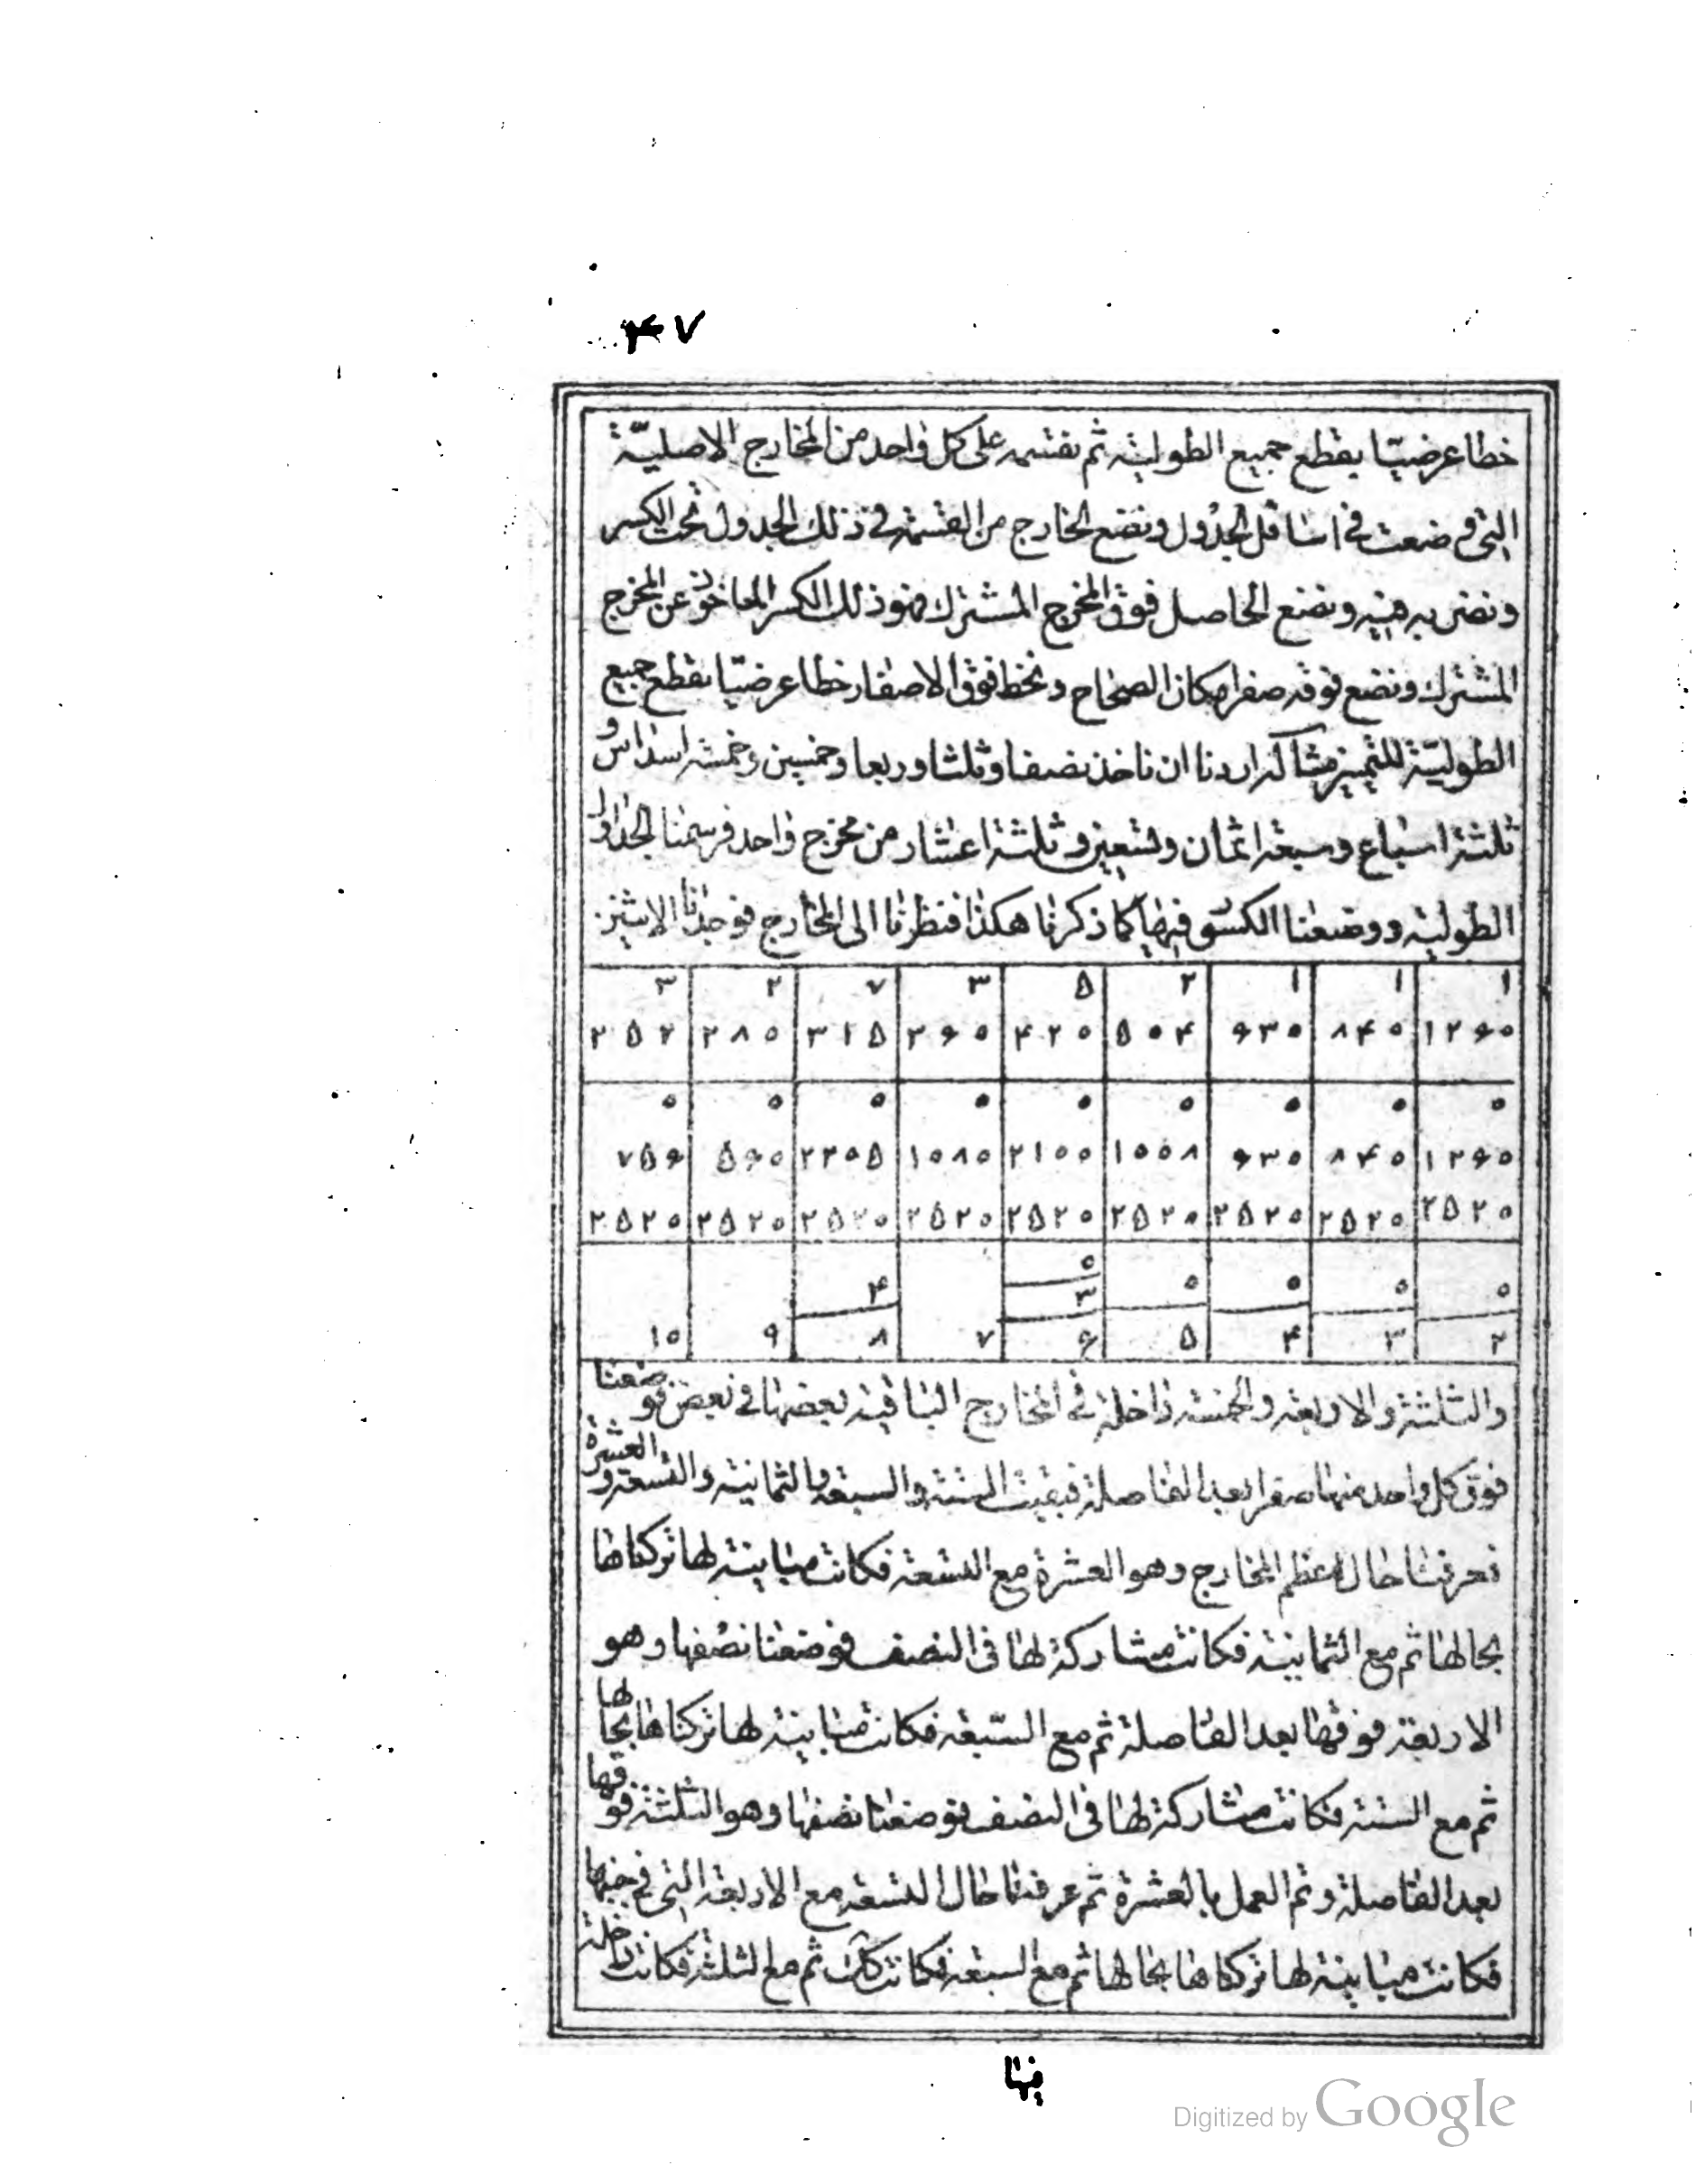 ۴۷
خطا عرضيّا يقطع جميع الطولية ثم نقسمه على كل واحد من المخارج الاصليّة
التى وضعت فى اسافل الجدول ونضع الخارج من القسمة فى ذلك الجدول تحت الكسر
ونضربه فيه ونضع الحاصل فوق المخرج المشترك فهو ذلك الكسر الماخوذ عن المخرج
المشترك ونضع فوقه صفرا مكان الصحاح ونخط فوق الاصفار خطا عرضيّا يقطع جميع
الطوليّة للتمييز مثاله اردنا ان ناخذ نصفا وثلثا وربعا وخمسين وخمسة اسداس و
ثلثة اسباع وسبعة اثمان وتسعين وثلثة اعشار من مخرج واحد فرسمنا الجداول
الطولية ووضعنا الكسور فيها كما ذكرنا هكذا فنظرنا الى المخارج فوجدنا الاثنين
۳ ۲ ۷ ۳ ۵ ۲ ۱ ۱ ۱
۲۵۲ ۲۸۰ ۳۱۵ ۳۶۰ ۴۲۰ ۵۰۴ ۶۳۰ ۸۴۰ ۱۲۶۰
۰ ۰ ۰ ۰ ۰ ۰ ۰ ۰ ۰
۷۵۶ ۵۶۰ ۲۲۰۵ ۱۰۸۰ ۲۱۰۰ ۱۰۰۸ ۶۳۰ ۸۴۰ ۱۲۶۰
۲۵۲۰ ۲۵۲۰ ۲۵۲۰ ۲۵۲۰ ۲۵۲۰ ۲۵۲۰ ۲۵۲۰ ۲۵۲۰ ۲۵۲۰
۰
۴ ۳ ۰ ۰ ۰ ۰
۱۰ ۹ ۸ ۷ ۶ ۵ ۴ ۳ ۲
والثلثة والاربعة والخمسة داخلة فى المخارج الباقية بعضها فى بعض فوضعنا
فوق كل واحد منها صفرا بعد الفاصلة فبقيت الستة والسبعة والثمانية والتسعة والعشرة
فعرفنا حال اعظم المخارج وهو العشرة مع التسعة فكانت مباينة لها تركناها
بحالها ثم مع الثمانية فكانت مشاركة لها فى النصف فوضعنا نصفها وهو
الاربعة فوقها بعد الفاصلة ثم مع السّبعة فكانت مباينة لها تركناها بحالها
ثم مع الستة فكانت مشاركة لها فى النصف فوضعنا نصفها وهو الثلثة فوقها
بعد الفاصلة وتم العمل بالعشرة ثم عرفنا حال التسعة مع الاربعة التى فى جنبها
فكانت مباينة لها تركناها بحالها ثم مع السبعة فكانت كك ثم مع الثلثة فكانت داخلة
فيها
Digitized by Google